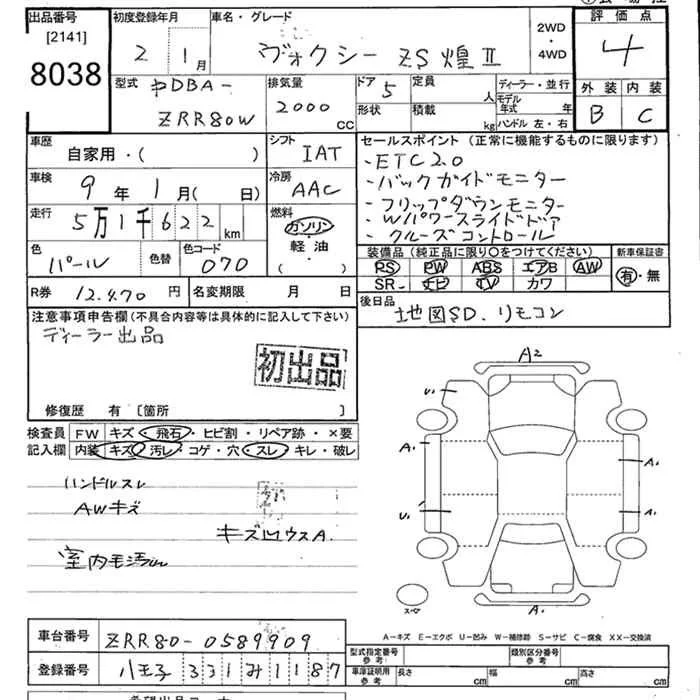 出品番号
[2141]
8038
初度登録年月
2 1月
車名・グレード
ヴォクシー ZS煌Ⅱ
2WD
・
4WD
評価点
4
外装 内装
B C
型式
DBA-
ZRR80W
排気量
2000
CC
ドア 5
定員
人
形状
積載
kg
ディーラー・並行
モデル
年式 年
ハンドル 左・右
車歴
自家用・( )
シフト
IAT
車検
9年1月( 日)
冷房
AAC
走行
5万1千622km
燃料
ガソリン
・
軽油
・
( )
色
パール
色替
色コード
070
R券
12.470円
名変期限 月 日
セールスポイント(正常に機能するものに限ります)
・ETC2.0
・バックガイドモニター
・フリップダウンモニター
・Wパワースライドドア
・クルーズコントロール
装備品(純正品に限り○をつけてください)
PS PW ABS エアB AW
SR ナビ TV カワ
新車保証書
有・無
後日品
地図SD、リモコン
注意事項申告欄(不具合内容等は具体的に記入して下さい)
ディーラー出品
初出品
修復歴 有 [箇所 ]
検査員
記入欄
FW キズ・飛石・ヒビ割・リペア跡・×要
内装 キズ・汚レ・コゲ・穴・スレ・キレ・破レ
ハンドルスレ
AWキズ
キズ凹ウスA.
室内モ汚レ
A2
U.
A.
A.
U.
A.
A.
スペア
A-キズ E-エクボ U-凹み W-補修跡 S-サビ C-腐食 XX-交換済
車台番号
ZRR80-0589909
登録番号
八王子 331み1187
型式指定番号
参考
類別区分番号
参考
車庫証明用
参考
長さ cm
幅 cm
高さ cm